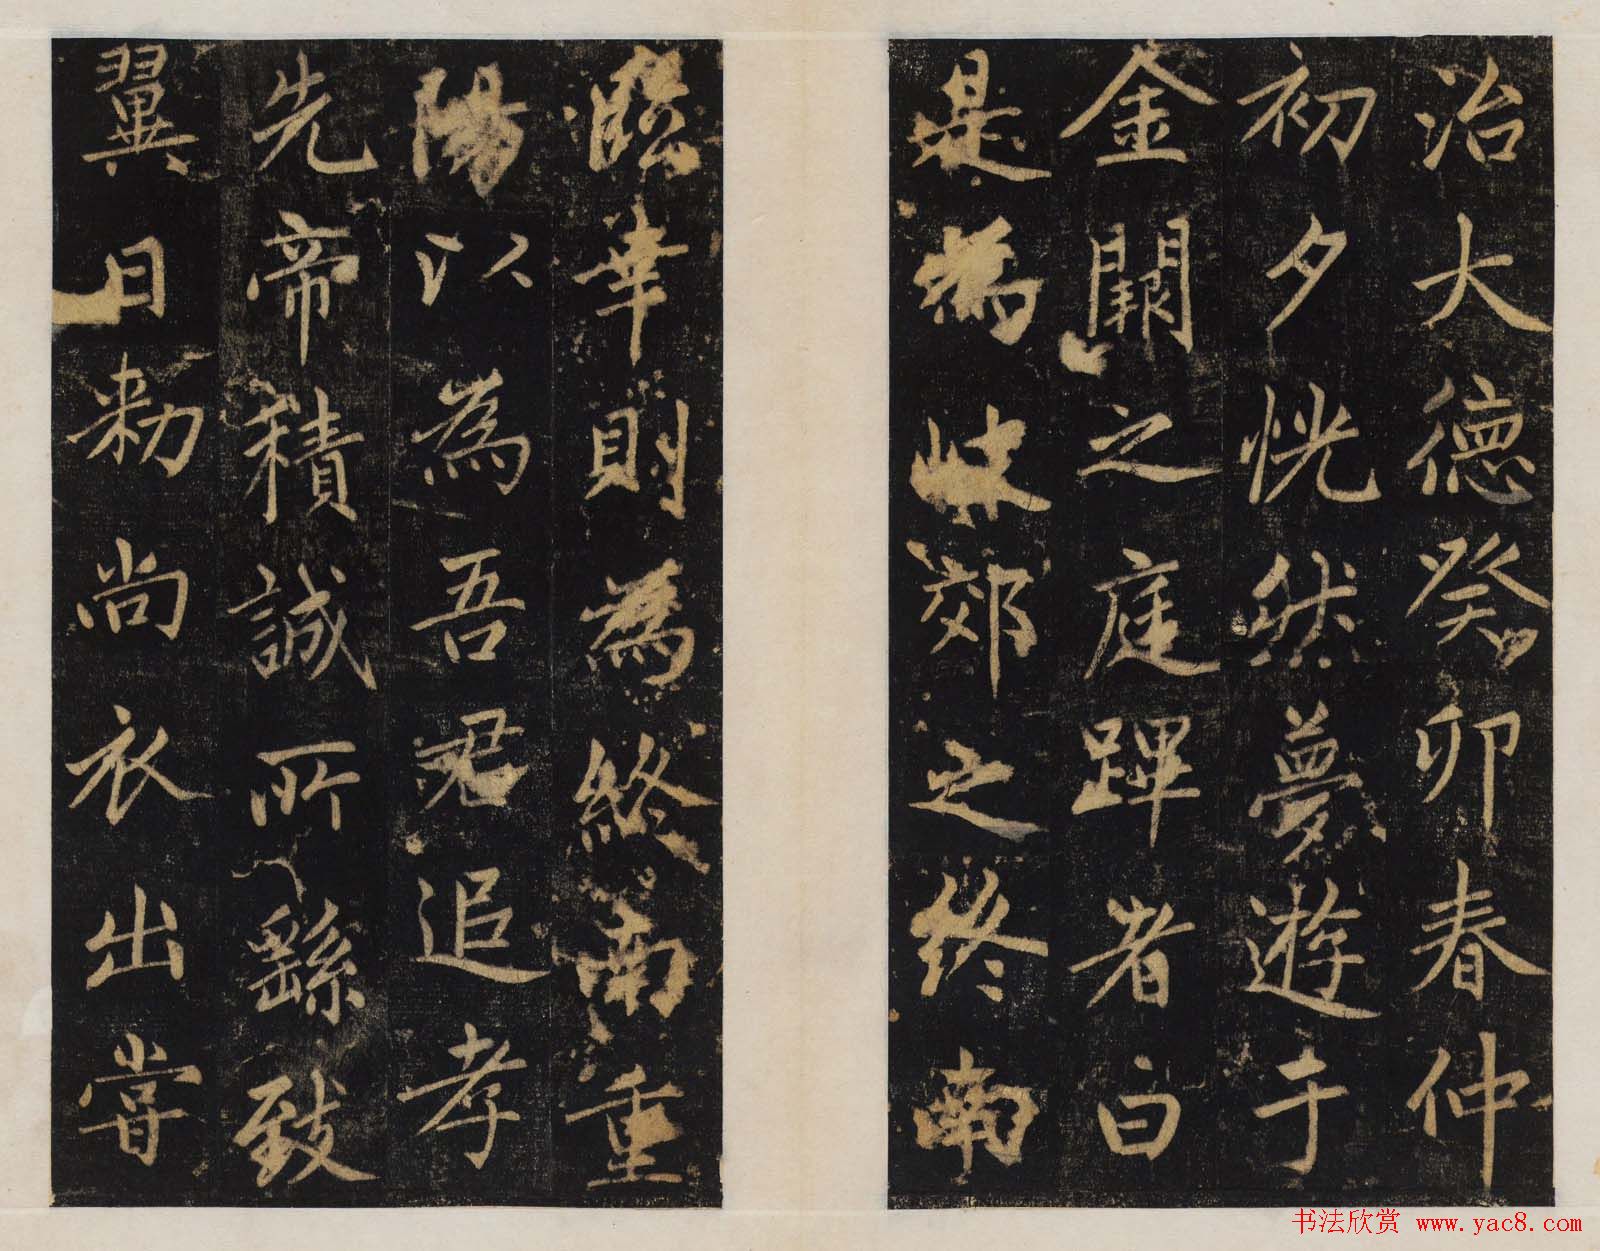 治大德癸卯春仲
初夕恍然夢遊于
金闕之庭蹕者白
是為郊之終南
臨幸則為終南重
陽以為吾君追孝
先帝積誠所繇致
翼日勑尚衣出嘗
书法欣赏 www.yac8.com